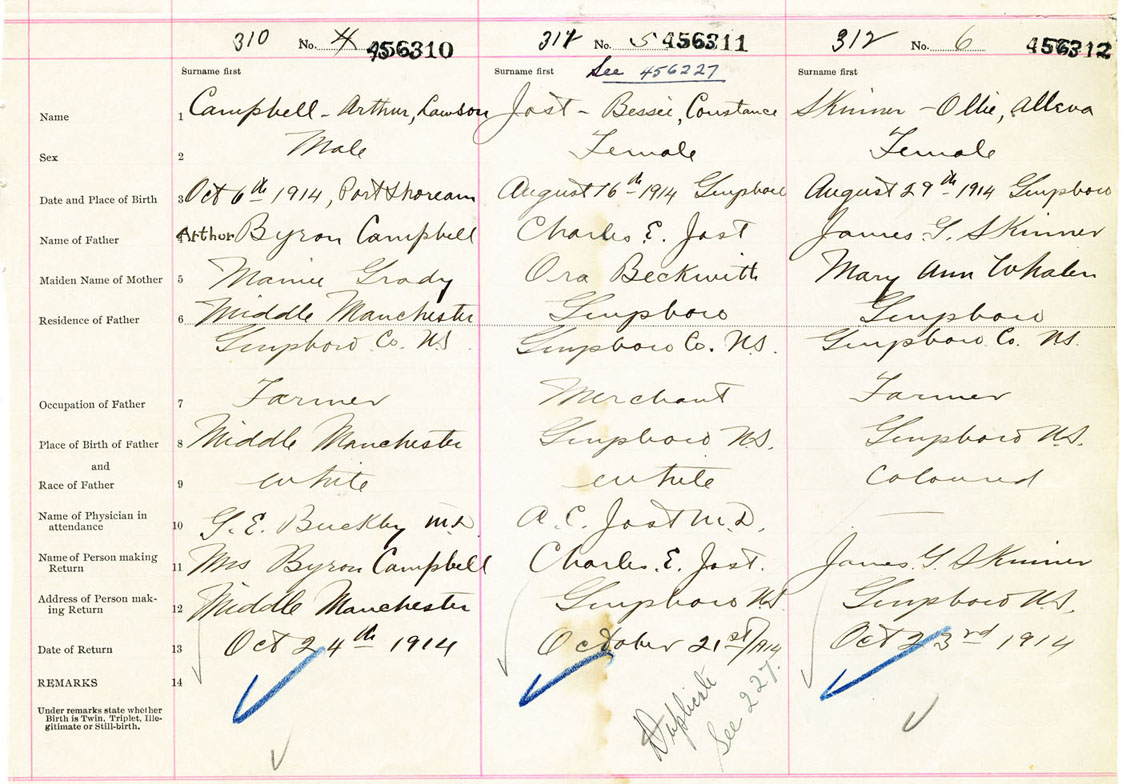 310 No. 4 456310 311 No. 5 456311 312 No. 6 456312
Surname first Surname first See 456227 Surname first
Name 1 Campbell - Arthur, Lawson Jost - Bessie, Constance Skinner - Ollie, Alleva
Sex 2 Male Female Female
Date and Place of Birth 3 Oct 6th 1914, Port Shoream August 16th 1914 Guysboro August 29th 1914 Guysboro
Name of Father 4 Arthur Byron Campbell Charles. E. Jost James. G. Skinner
Maiden Name of Mother 5 Mamie Grady Ora Beckwith Mary Ann Whalen
Residence of Father 6 Middle Manchester Guysboro Guysboro
Guysboro Co. N.S. Guysboro Co. N.S. Guysboro Co. N.S.
Occupation of Father 7 Farmer Merchant Farmer
Place of Birth of Father 8 Middle Manchester Guysboro N.S. Guysboro N.S.
and
Race of Father 9 White White Coloured
Name of Physician in
attendance 10 G. E. Buckley M.D. A. C. Jost M.D.
Name of Person making
Return 11 Mrs Byron Campbell Charles. E. Jost. James. G. Skinner
Address of Person mak-
ing Return 12 Middle Manchester Guysboro N.S. Guysboro N.S.
Date of Return 13 Oct 24th 1914 October 21st/1914 Oct 23rd 1914
REMARKS 14
Under remarks state whether
Birth is Twin, Triplet, Ille-
gitimate or Still-birth.
Duplicate
See 227.